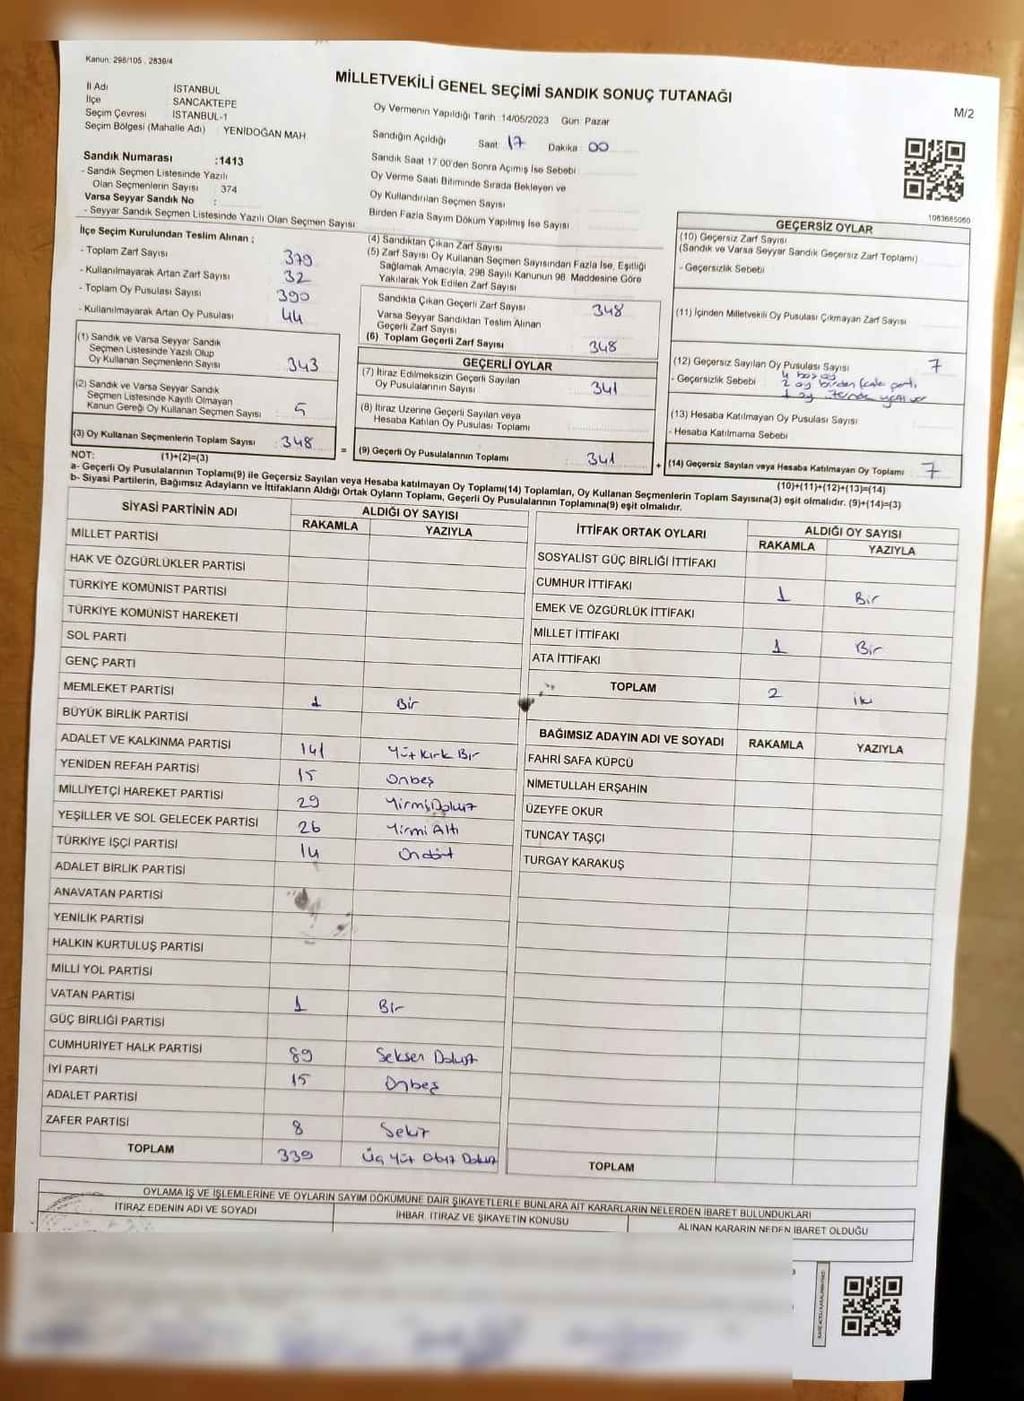 Kanun: 298/105 , 2839/4
MİLLETVEKİLİ GENEL SEÇİMİ SANDIK SONUÇ TUTANAĞI
M/2
İl Adı İSTANBUL
İlçe SANCAKTEPE
Seçim Çevresi İSTANBUL-1
Seçim Bölgesi (Mahalle Adı) YENİDOĞAN MAH
Sandık Numarası :1413
- Sandık Seçmen Listesinde Yazılı
Olan Seçmenlerin Sayısı : 374
Varsa Seyyar Sandık No :
- Seyyar Sandık Seçmen Listesinde Yazılı Olan Seçmen Sayısı
Oy Vermenin Yapıldığı Tarih :14/05/2023 Gün: Pazar
Sandığın Açıldığı Saat 17 Dakika : 00
Sandık Saat 17:00'den Sonra Açımış İse Sebebi
Oy Verme Saati Bitiminde Sırada Bekleyen ve
Oy Kullandırılan Seçmen Sayısı
Birden Fazla Sayım Döküm Yapılmış İse Sayısı
1063685060
İlçe Seçim Kurulundan Teslim Alınan ;
- Toplam Zarf Sayısı 379
- Kullanılmayarak Artan Zarf Sayısı 32
- Toplam Oy Pusulası Sayısı 390
- Kullanılmayarak Artan Oy Pusulası 44
(1) Sandık ve Varsa Seyyar Sandık
Seçmen Listesinde Yazılı Olup
Oy Kullanan Seçmenlerin Sayısı 343
(2) Sandık ve Varsa Seyyar Sandık
Seçmen Listesinde Kayıtlı Olmayan
Kanun Gereği Oy Kullanan Seçmen Sayısı 5
(3) Oy Kullanan Seçmenlerin Toplam Sayısı 348 =
(1)+(2)=(3)
(4) Sandıktan Çıkan Zarf Sayısı
(5) Zarf Sayısı Oy Kullanan Seçmen Sayısından Fazla İse, Eşitliği
Sağlamak Amacıyla, 298 Sayılı Kanunun 98. Maddesine Göre
Yakılarak Yok Edilen Zarf Sayısı
Sandıkta Çıkan Geçerli Zarf Sayısı 348
Varsa Seyyar Sandıktan Teslim Alınan
Geçerli Zarf Sayısı
(6) Toplam Geçerli Zarf Sayısı 348
GEÇERLİ OYLAR
(7) İtiraz Edilmeksizin Geçerli Sayılan
Oy Pusulalarının Sayısı 341
(8) İtiraz Üzerine Geçerli Sayılan veya
Hesaba Katılan Oy Pusulası Toplamı
(9) Geçerli Oy Pusulalarının Toplamı 341 +
GEÇERSİZ OYLAR
(10) Geçersiz Zarf Sayısı
(Sandık ve Varsa Seyyar Sandık Geçersiz Zarf Toplamı)
- Geçersizlik Sebebi
(11) İçinden Milletvekili Oy Pusulası Çıkmayan Zarf Sayısı
(12) Geçersiz Sayılan Oy Pusulası Sayısı 7
- Geçersizlik Sebebi 4 boş oy
2 oy birden fazla parti
1 oy
(13) Hesaba Katılmayan Oy Pusulası Sayısı
- Hesaba Katılmama Sebebi
(14) Geçersiz Sayılan veya Hesaba Katılmayan Oy Toplamı 7
(10)+(11)+(12)+(13)=(14)
NOT:
a- Geçerli Oy Pusulalarının Toplamı(9) ile Geçersiz Sayılan veya Hesaba katılmayan Oy Toplamı(14) Toplamları, Oy Kullanan Seçmenlerin Toplam Sayısına(3) eşit olmalıdır. (9)+(14)=(3)
b- Siyasi Partilerin, Bağımsız Adayların ve İttifakların Aldığı Ortak Oyların Toplamı, Geçerli Oy Pusulalarının Toplamına(9) eşit olmalıdır.
SİYASİ PARTİNİN ADI ALDIĞI OY SAYISI
RAKAMLA YAZIYLA
MİLLET PARTİSİ
HAK VE ÖZGÜRLÜKLER PARTİSİ
TÜRKİYE KOMÜNİST PARTİSİ
TÜRKİYE KOMÜNİST HAREKETİ
SOL PARTİ
GENÇ PARTİ
MEMLEKET PARTİSİ 1 Bir
BÜYÜK BİRLİK PARTİSİ
ADALET VE KALKINMA PARTİSİ 141 Yüz Kırk Bir
YENİDEN REFAH PARTİSİ 15 Onbeş
MİLLİYETÇİ HAREKET PARTİSİ 29 Yirmi Dokuz
YEŞİLLER VE SOL GELECEK PARTİSİ 26 Yirmi Altı
TÜRKİYE İŞÇİ PARTİSİ 14 Ondört
ADALET BİRLİK PARTİSİ
ANAVATAN PARTİSİ
YENİLİK PARTİSİ
HALKIN KURTULUŞ PARTİSİ
MİLLİ YOL PARTİSİ
VATAN PARTİSİ 1 Bir
GÜÇ BİRLİĞİ PARTİSİ
CUMHURİYET HALK PARTİSİ 89 Seksen Dokuz
İYİ PARTİ 15 Onbeş
ADALET PARTİSİ
ZAFER PARTİSİ 8 Sekiz
TOPLAM 339 Üç Yüz Otuz Dokuz
İTTİFAK ORTAK OYLARI ALDIĞI OY SAYISI
RAKAMLA YAZIYLA
SOSYALİST GÜÇ BİRLİĞİ İTTİFAKI
CUMHUR İTTİFAKI 1 Bir
EMEK VE ÖZGÜRLÜK İTTİFAKI
MİLLET İTTİFAKI 1 Bir
ATA İTTİFAKI
TOPLAM 2 iki
BAĞIMSIZ ADAYIN ADI VE SOYADI RAKAMLA YAZIYLA
FAHRİ SAFA KÜPCÜ
NİMETULLAH ERŞAHİN
ÜZEYFE OKUR
TUNCAY TAŞÇI
TURGAY KARAKUŞ
TOPLAM
OYLAMA İŞ VE İŞLEMLERİNE VE OYLARIN SAYIM DÖKÜMÜNE DAİR ŞİKAYETLERLE BUNLARA AİT KARARLARIN NELERDEN İBARET BULUNDUKLARI
İTİRAZ EDENİN ADI VE SOYADI İHBAR, İTİRAZ VE ŞİKAYETİN KONUSU ALINAN KARARIN NEDEN İBARET OLDUĞU